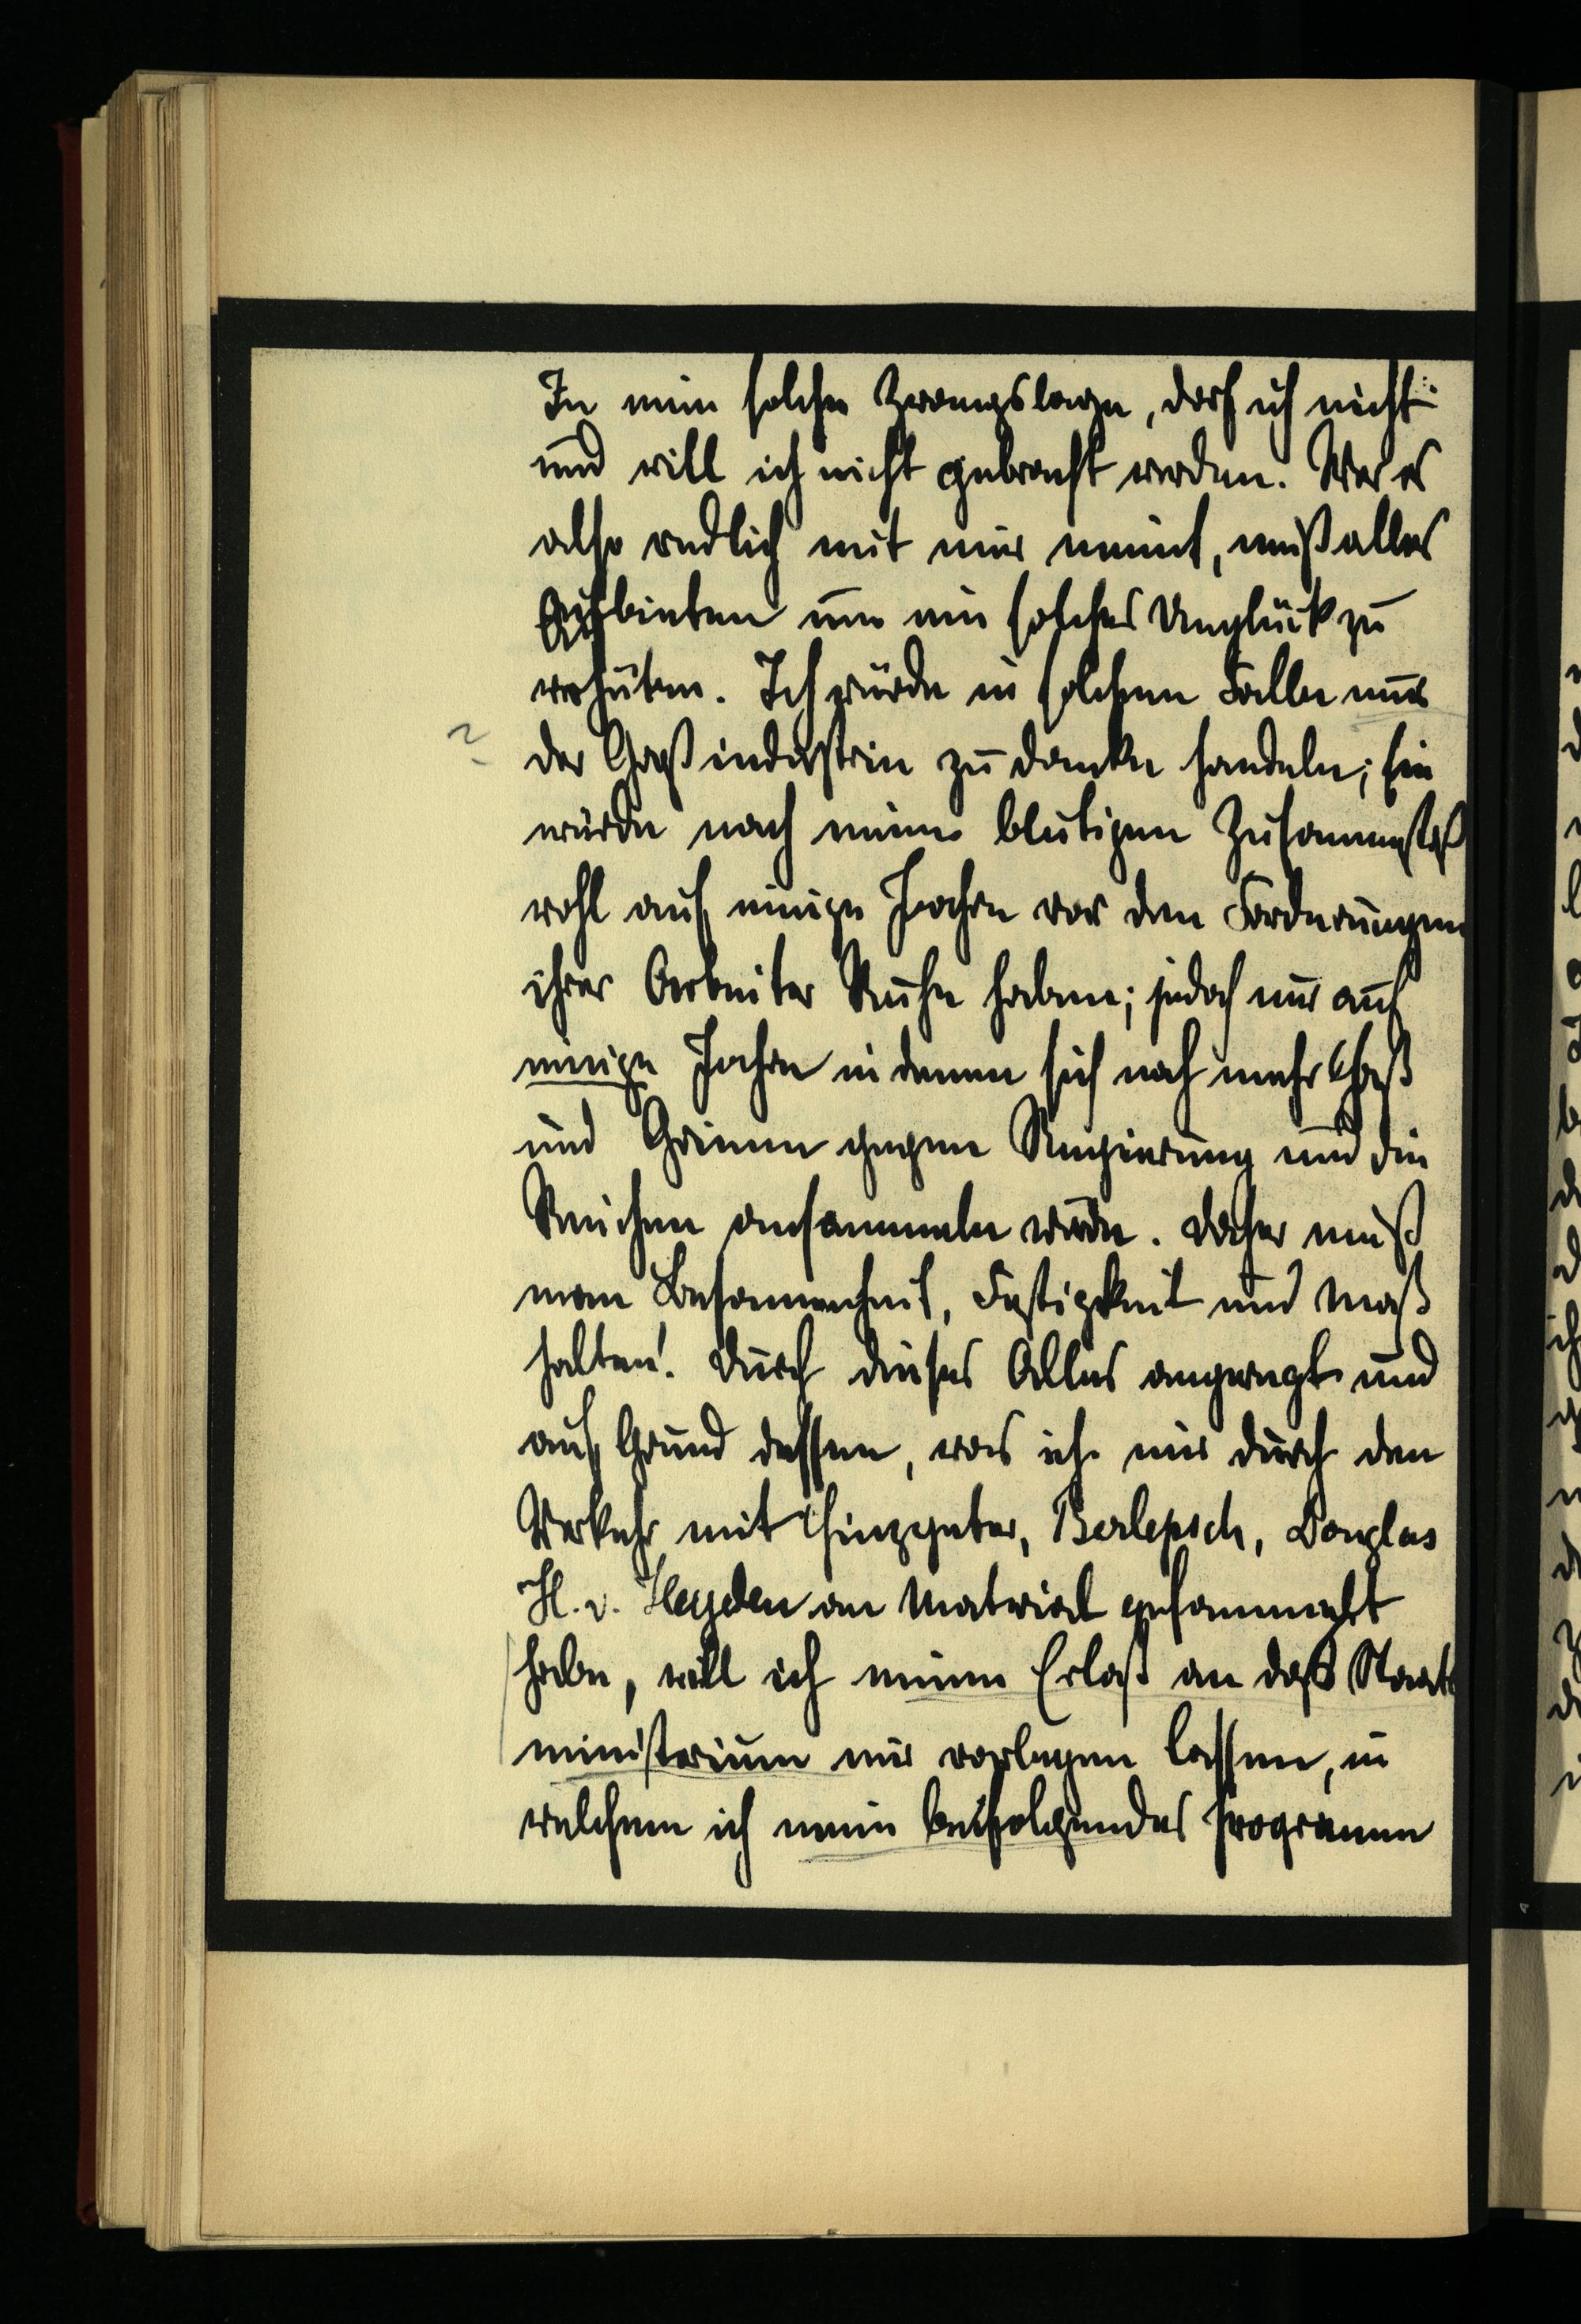 In eine solche Zwangslage, darf ich nicht
und will ich nicht gebracht werden. Wer es
also redlich mit mir meint, muß alles
Aufbieten um ein solches Unglück zu
verhüten. Ich würde in solchem Falle nur
?
der Großindustrie zu danke handeln; sie
würde nach einem blutigen Zusammenstoß
wohl auf einige Jahre vor den Forderungen
ihrer Arbeiter Ruhe haben; jedoch nur auf
einige Jahre in denen sich noch mehr Haß
und Grimm gegen Regierung und die
Reichen ansammeln würde. Daher muß
man Besonnenheit, Festigkeit und Maß
halten! Durch dieses Alles angeregt und
auf Grund dessen, was ich mir durch den
Verkehr mit Hinzpeter, Berlepsch, Douglas
H. v. Heyden an Material gesammelt
habe, will ich einen Erlaß an daß Staats
ministerium mir vorlegen lassen, in
welchem ich mein beifolgendes Programm